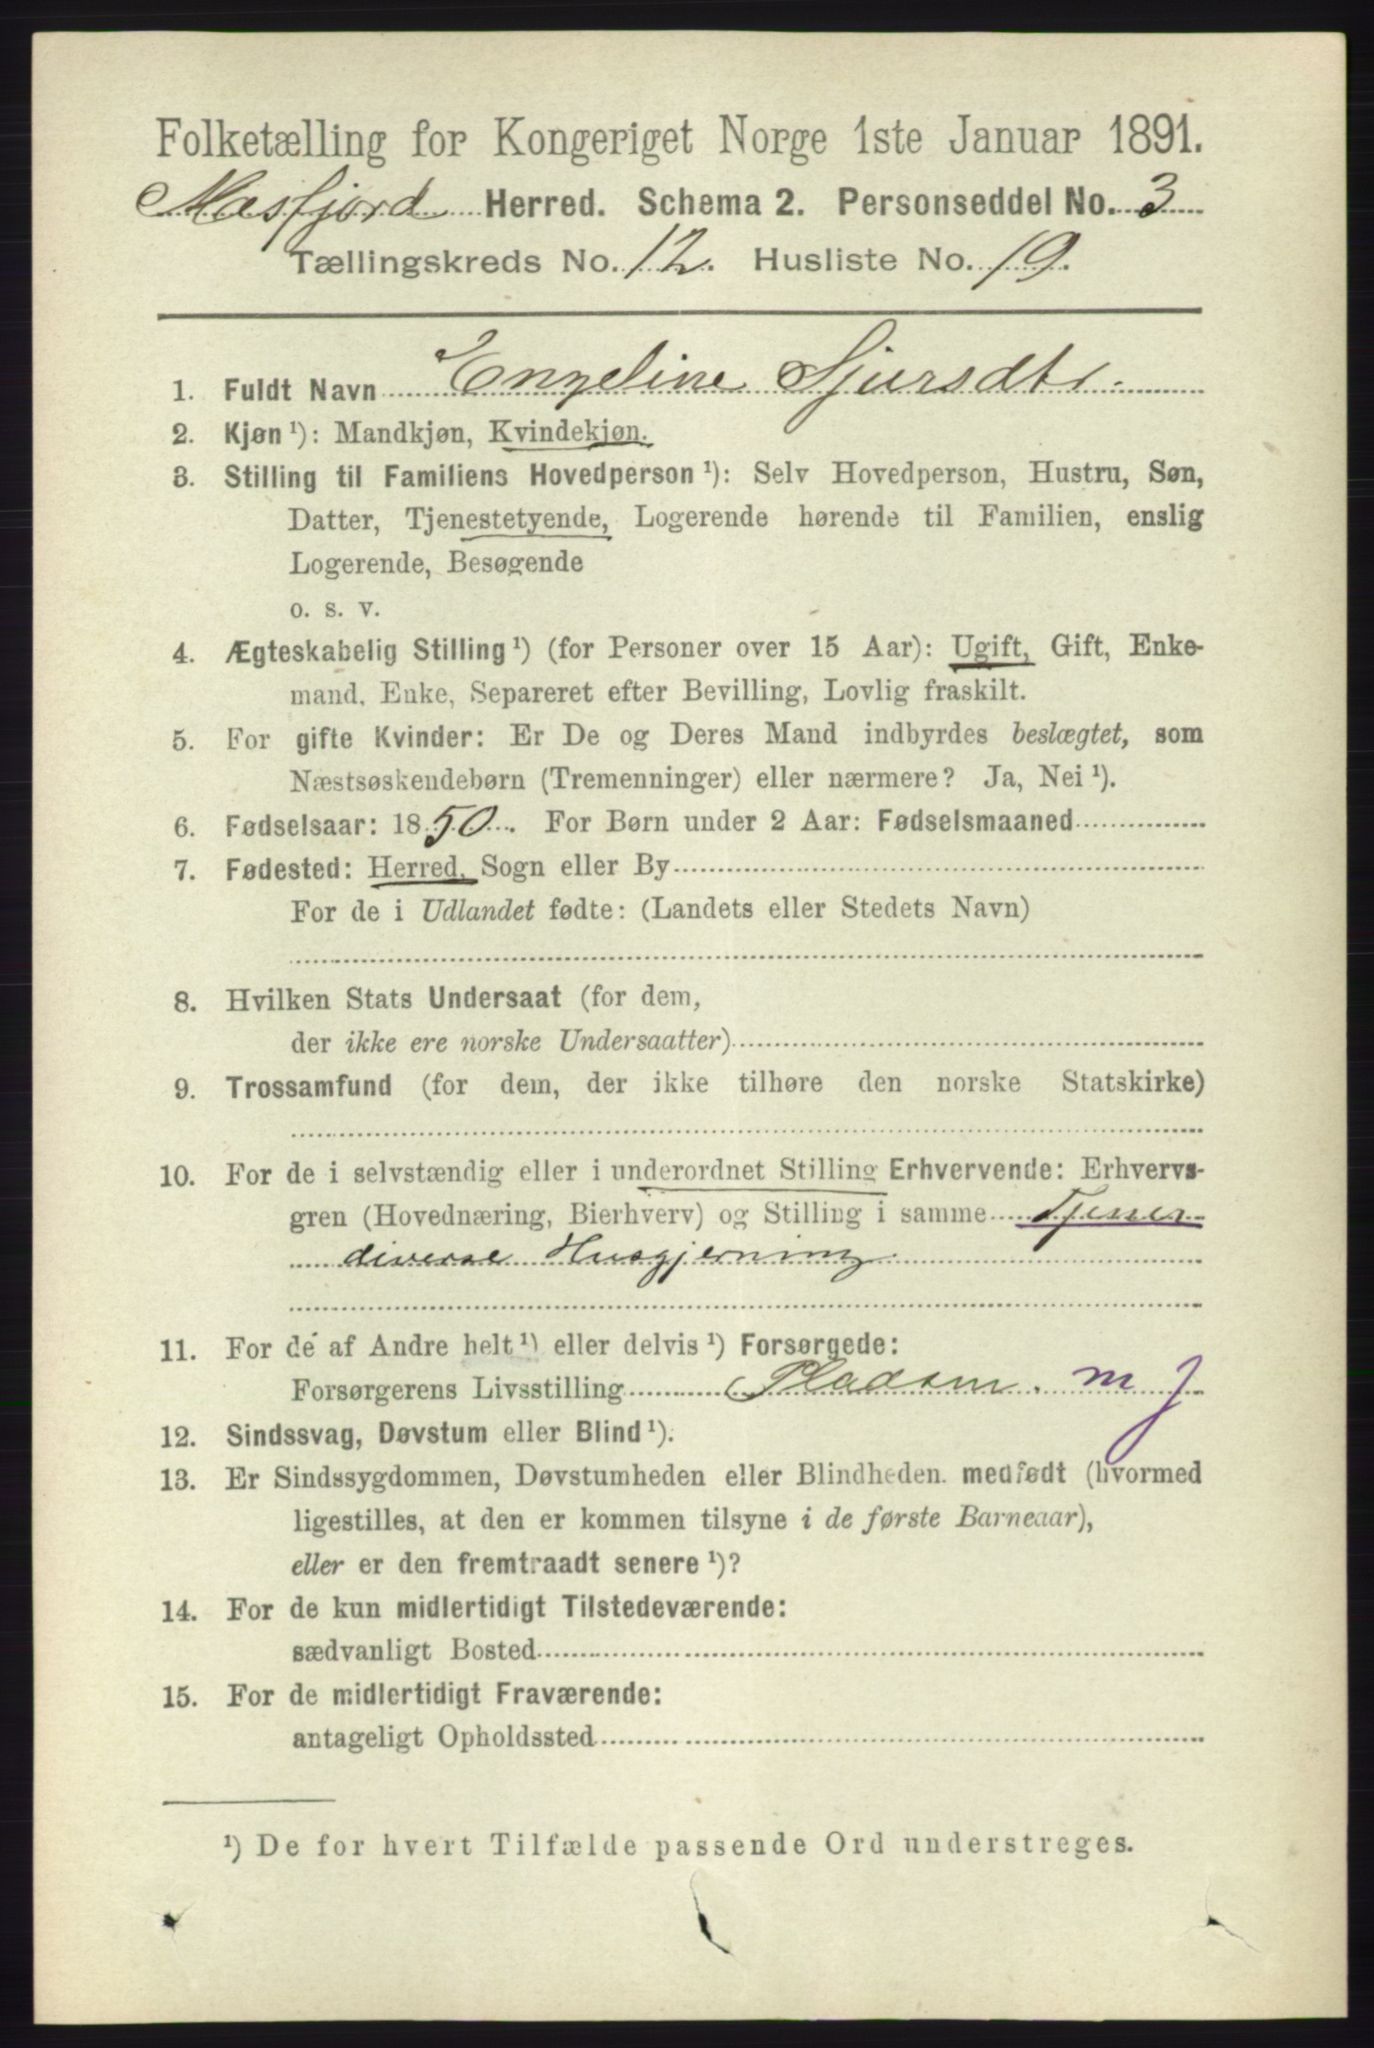 Folketælling for Kongeriget Norge 1ste Januar 1891.
Masfjord Herred. Schema 2. Personseddel No. 3
Tællingskreds No. 12. Husliste No. 19.
1. Fuldt Navn Engeline Sjursdt.
2. Kjøn ¹): Mandkjøn, Kvindekjøn.
3. Stilling til Familiens Hovedperson ¹): Selv Hovedperson, Hustru, Søn,
Datter, Tjenestetyende, Logerende hørende til Familien, enslig
Logerende, Besøgende
o. s. v.
4. Ægteskabelig Stilling ¹) (for Personer over 15 Aar): Ugift, Gift, Enke-
mand, Enke, Separeret efter Bevilling, Lovlig fraskilt.
5. For gifte Kvinder: Er De og Deres Mand indbyrdes beslægtet, som
Næstsøskendebørn (Tremenninger) eller nærmere? Ja, Nei ¹).
6. Fødselsaar: 1850. For Børn under 2 Aar: Fødselsmaaned
7. Fødested: Herred, Sogn eller By
For de i Udlandet fødte: (Landets eller Stedets Navn)
8. Hvilken Stats Undersaat (for dem,
der ikke ere norske Undersaatter)
9. Trossamfund (for dem, der ikke tilhøre den norske Statskirke)
10. For de i selvstændig eller i underordnet Stilling Erhvervende: Erhvervs-
gren (Hovednæring, Bierhverv) og Stilling i samme Tjener
diverse Husgjerning.
11. For de af Andre helt ¹) eller delvis ¹) Forsørgede:
Forsørgerens Livsstilling Pladsm. m J
12. Sindssvag, Døvstum eller Blind ¹).
13. Er Sindssygdommen, Døvstumheden eller Blindheden medfødt (hvormed
ligestilles, at den er kommen tilsyne i de første Barneaar),
eller er den fremtraadt senere ¹)?
14. For de kun midlertidigt Tilstedeværende:
sædvanligt Bosted
15. For de midlertidigt Fraværende:
antageligt Opholdssted
¹) De for hvert Tilfælde passende Ord understreges.